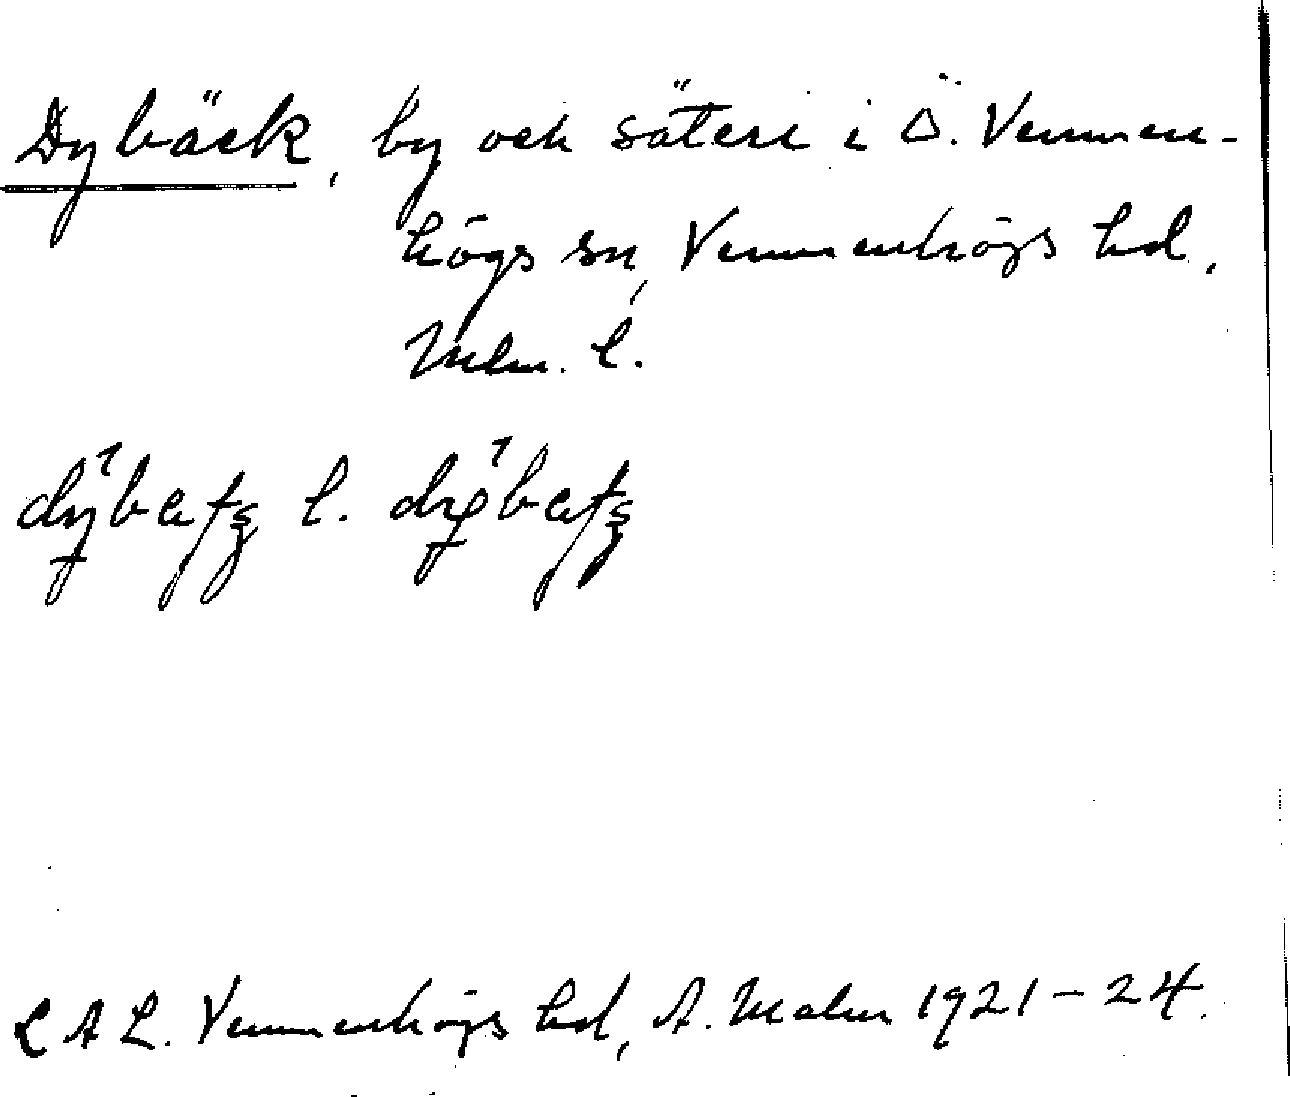 Dybäck, by och säteri i Ö. Vemmen-
högs sn, Vemmenhögs hd,
Mlm. l.
l.
LAL. Vemmenhögs hd, A. Malm 1921-24.